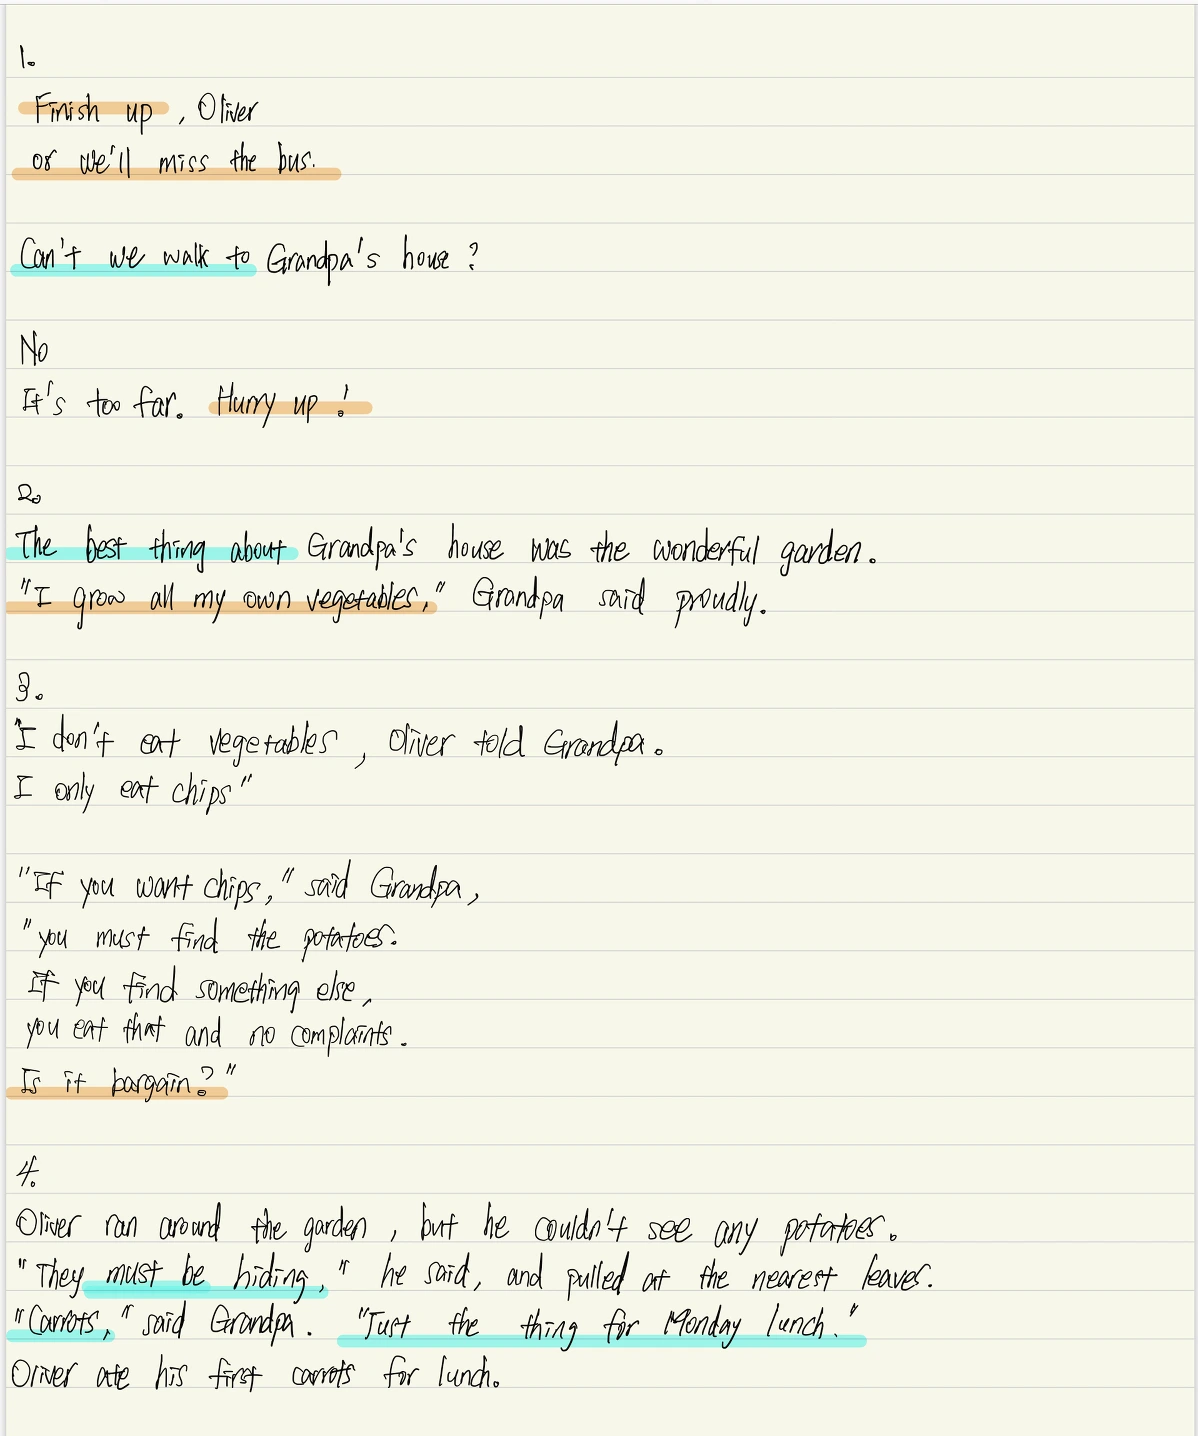 1.
Finish up, Oliver
or we'll miss the bus.
Can't we walk to Grandpa's house?
No
It's too far. Hurry up!
2.
The best thing about Grandpa's house was the wonderful garden.
"I grow all my own vegetables," Grandpa said proudly.
3.
"I don't eat vegetables, Oliver told Grandpa.
I only eat chips"
"If you want chips," said Grandpa,
"you must find the potatoes.
If you find something else,
you eat that and no complaints.
Is it bargain?"
4.
Oliver ran around the garden, but he couldn't see any potatoes.
"They must be hiding," he said, and pulled at the nearest leaves.
"Carrots," said Grandpa. "Just the thing for Monday lunch."
Oliver ate his first carrots for lunch.